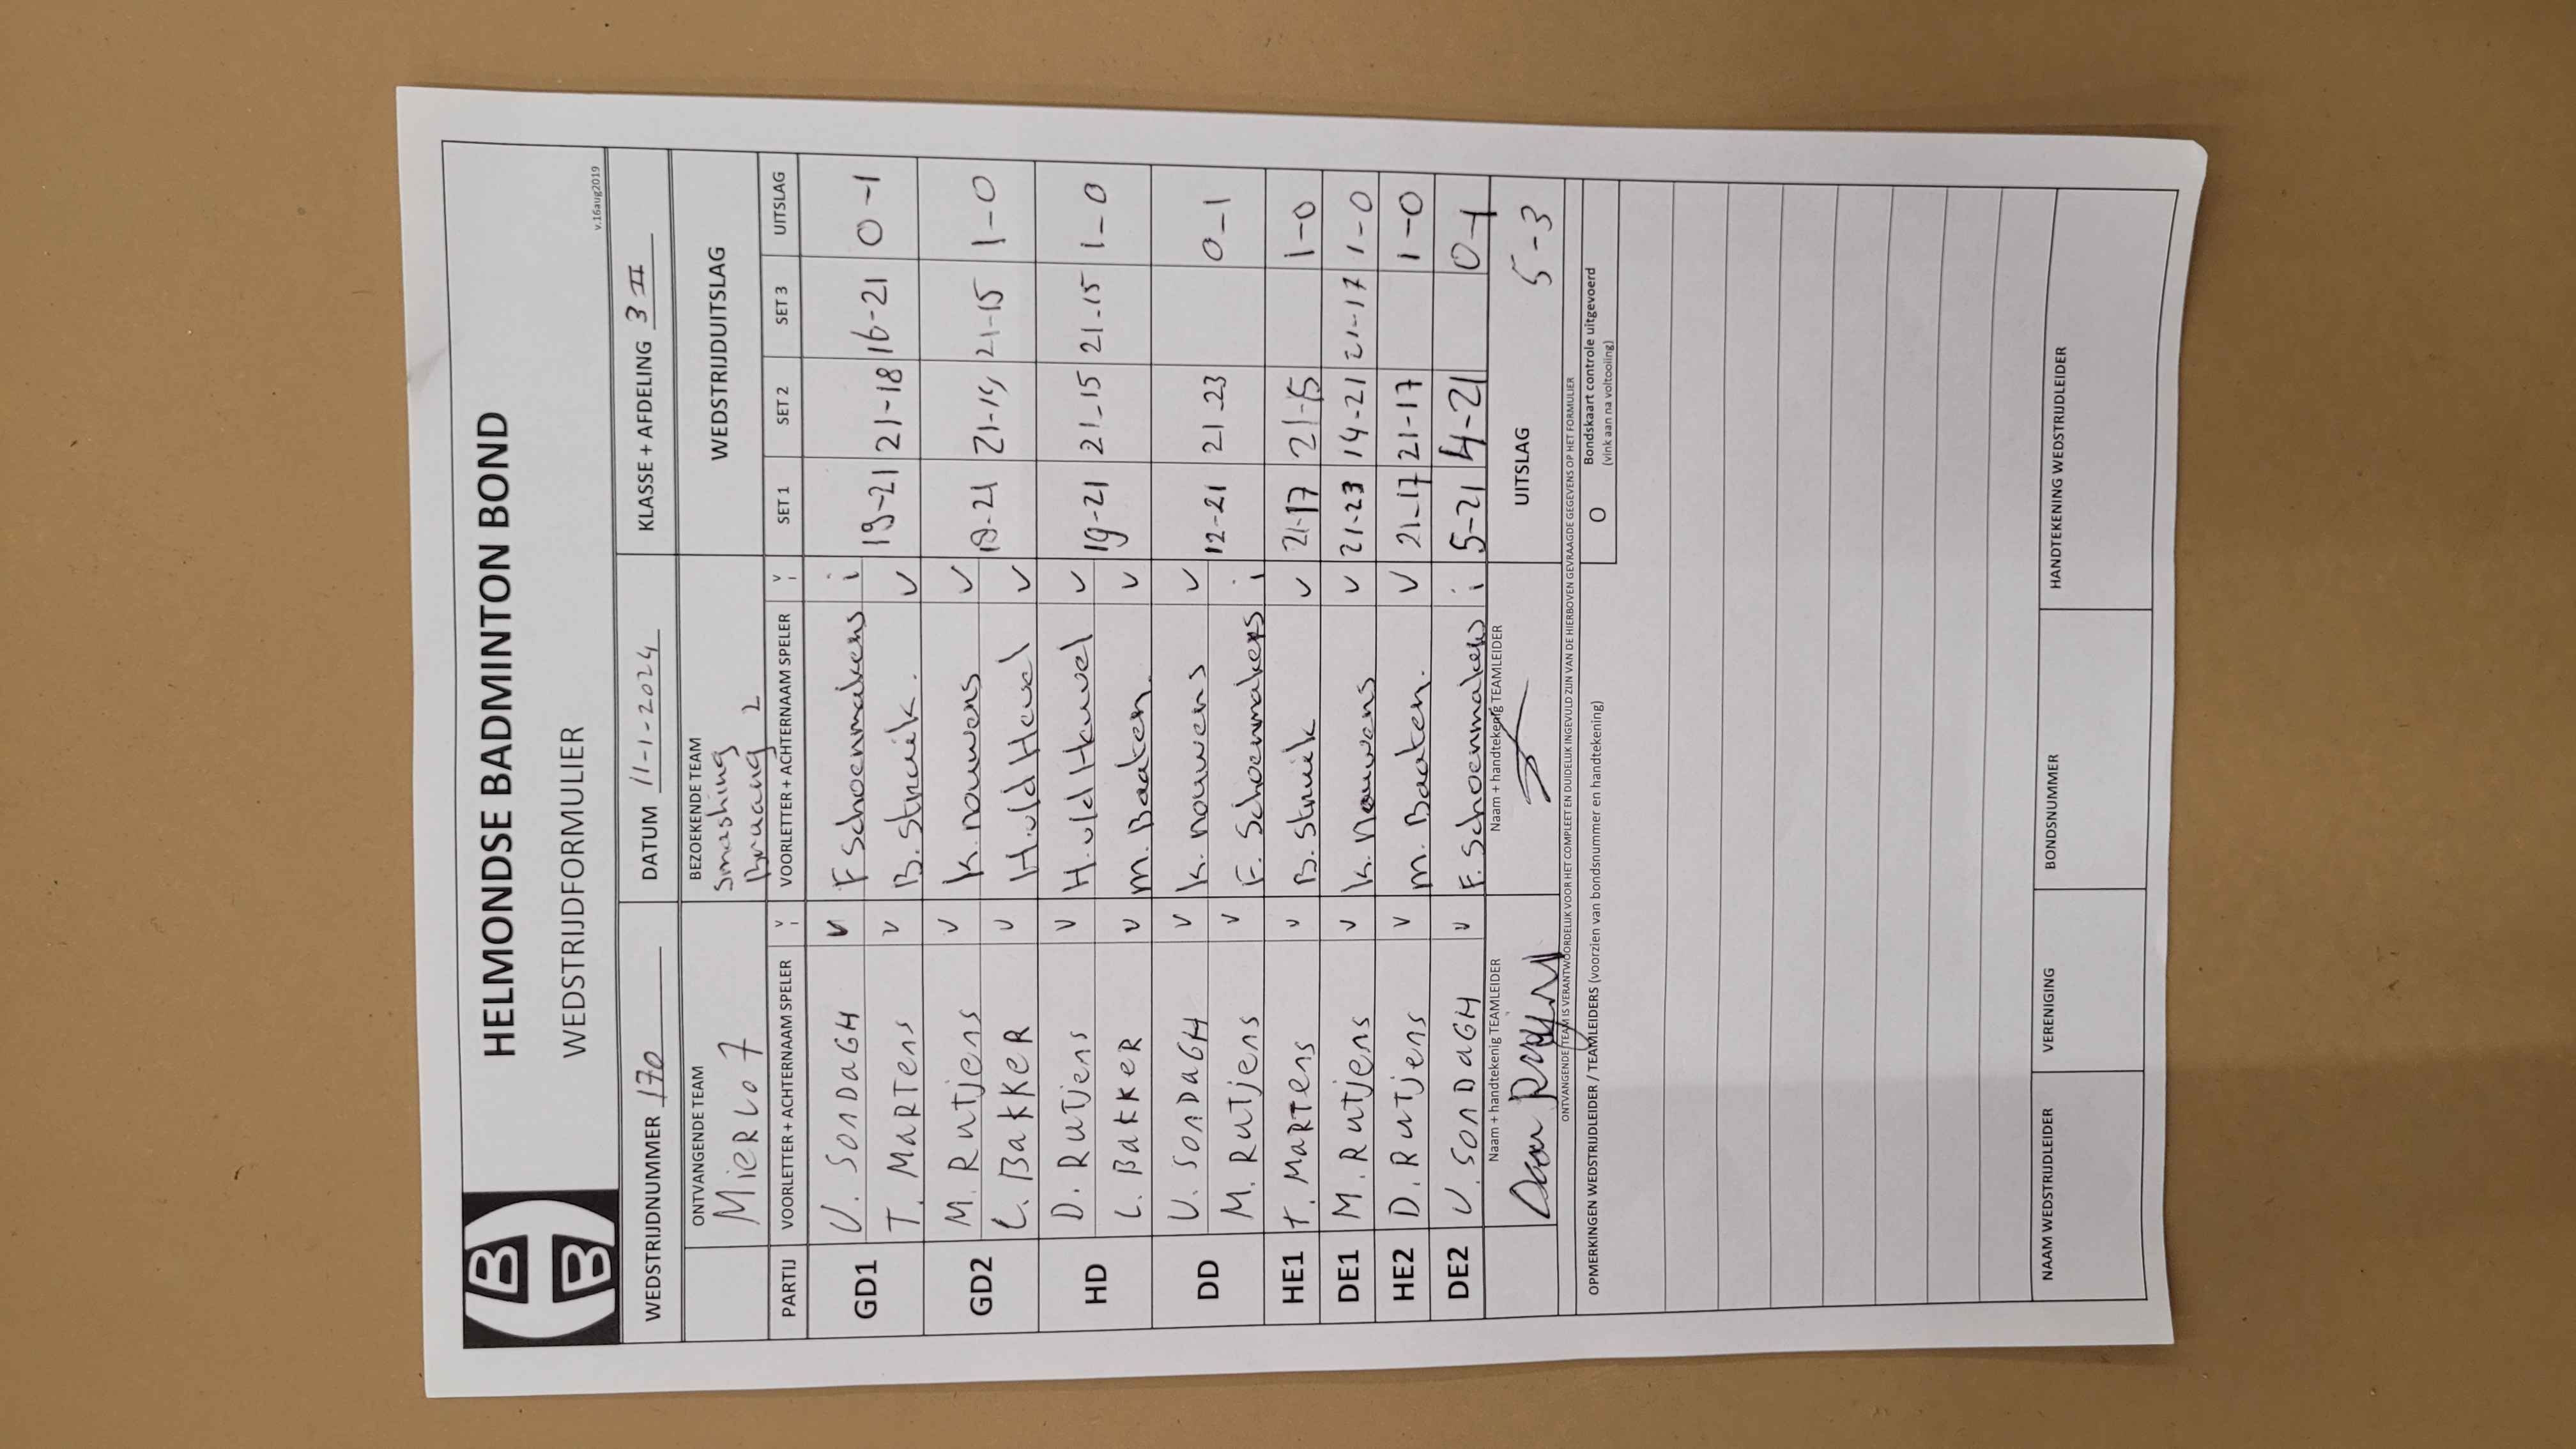 HELMONDSE BADMINTON BOND
WEDSTRIJDFORMULIER
v.16aug2019
WEDSTRIJDNUMMER 170 DATUM 11-1-2024 KLASSE + AFDELING 3 II
ONTVANGENDE TEAM BEZOEKENDE TEAM WEDSTRIJDUITSLAG
Mierlo 7 Smashing
Bruang 2
PARTIJ VOORLETTER + ACHTERNAAM SPELER V I VOORLETTER + ACHTERNAAM SPELER V I SET 1 SET 2 SET 3 UITSLAG
GD1 V. SONDAGH v F Schoenmakers i 19-21 21-18 16-21 0-1
T. MARTens v B. Struik. v
GD2 M. Rutjens v K. nouwens v 19-21 21-15 21-15 1-0
L. BakkeR v H.vld Heuvel v
HD D. Rutjens v H.vld Heuvel v 19-21 21-15 21-15 1-0
L. BakkeR v M. Baaken. v
DD V. SONDAGH v K. nouwens v 12-21 21-23 0-1
M. Rutjens v F. Schoenmakers i
HE1 T. MARTens v B. Struik v 21-17 21-15 1-0
DE1 M. Rutjens v K. Nouwens v 21-23 14-21 21-17 1-0
HE2 D. Rutjens v M. Baaken. v 21-17 21-17 1-0
DE2 V. SONDAGH v F. Schoenmakers i 5-21 4-21 0-1
Naam + handtekenig TEAMLEIDER Naam + handtekenig TEAMLEIDER UITSLAG 5-3
ONTVANGENDE TEAM IS VERANTWOORDELIJK VOOR HET COMPLEET EN DUIDELIJK INGEVULD ZIJN VAN DE HIERBOVEN GEVRAAGDE GEGEVENS OP HET FORMULIER
OPMERKINGEN WEDSTRIJDLEIDER / TEAMLEIDERS (voorzien van bondsnummer en handtekening)
O Bondskaart controle uitgevoerd
(vink aan na voltooiing)
NAAM WEDSTRIJDLEIDER VERENIGING BONDSNUMMER HANDTEKENING WEDSTRIJDLEIDER